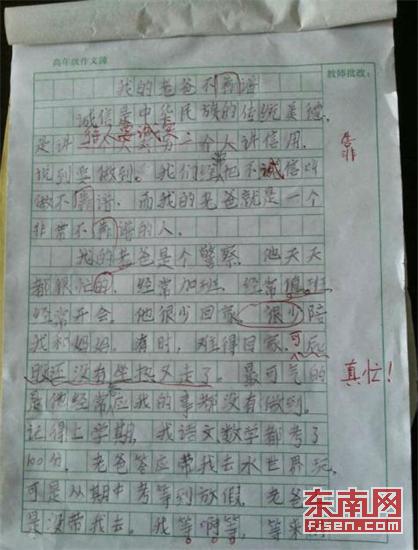 高年级作文簿
教师批改:
我的老爸不靠谱
诚信是中华民族的传统美德,
是讲给人要诚实,二个人讲信用,
说到要做到。我们经常把不诚信叫
做不靠谱。而我的老爸就是一个
非常不靠谱的人。
靠
我的老爸是个警察,他天天
都很忙的,经常加班,经常值班
经常开会,他很少回家,很少陪
我和妈妈。有时,难得回家,可屁
股还没有坐热又走了。最可气的
真忙!
是他经常应我的事都没有做到。
记得上学期,我语文数学都考了
100分。老爸答应带我去水世界玩,
可是从期中考等到放假,老爸
是没带我去。我等啊等,等来
东南网
FJSEN.COM